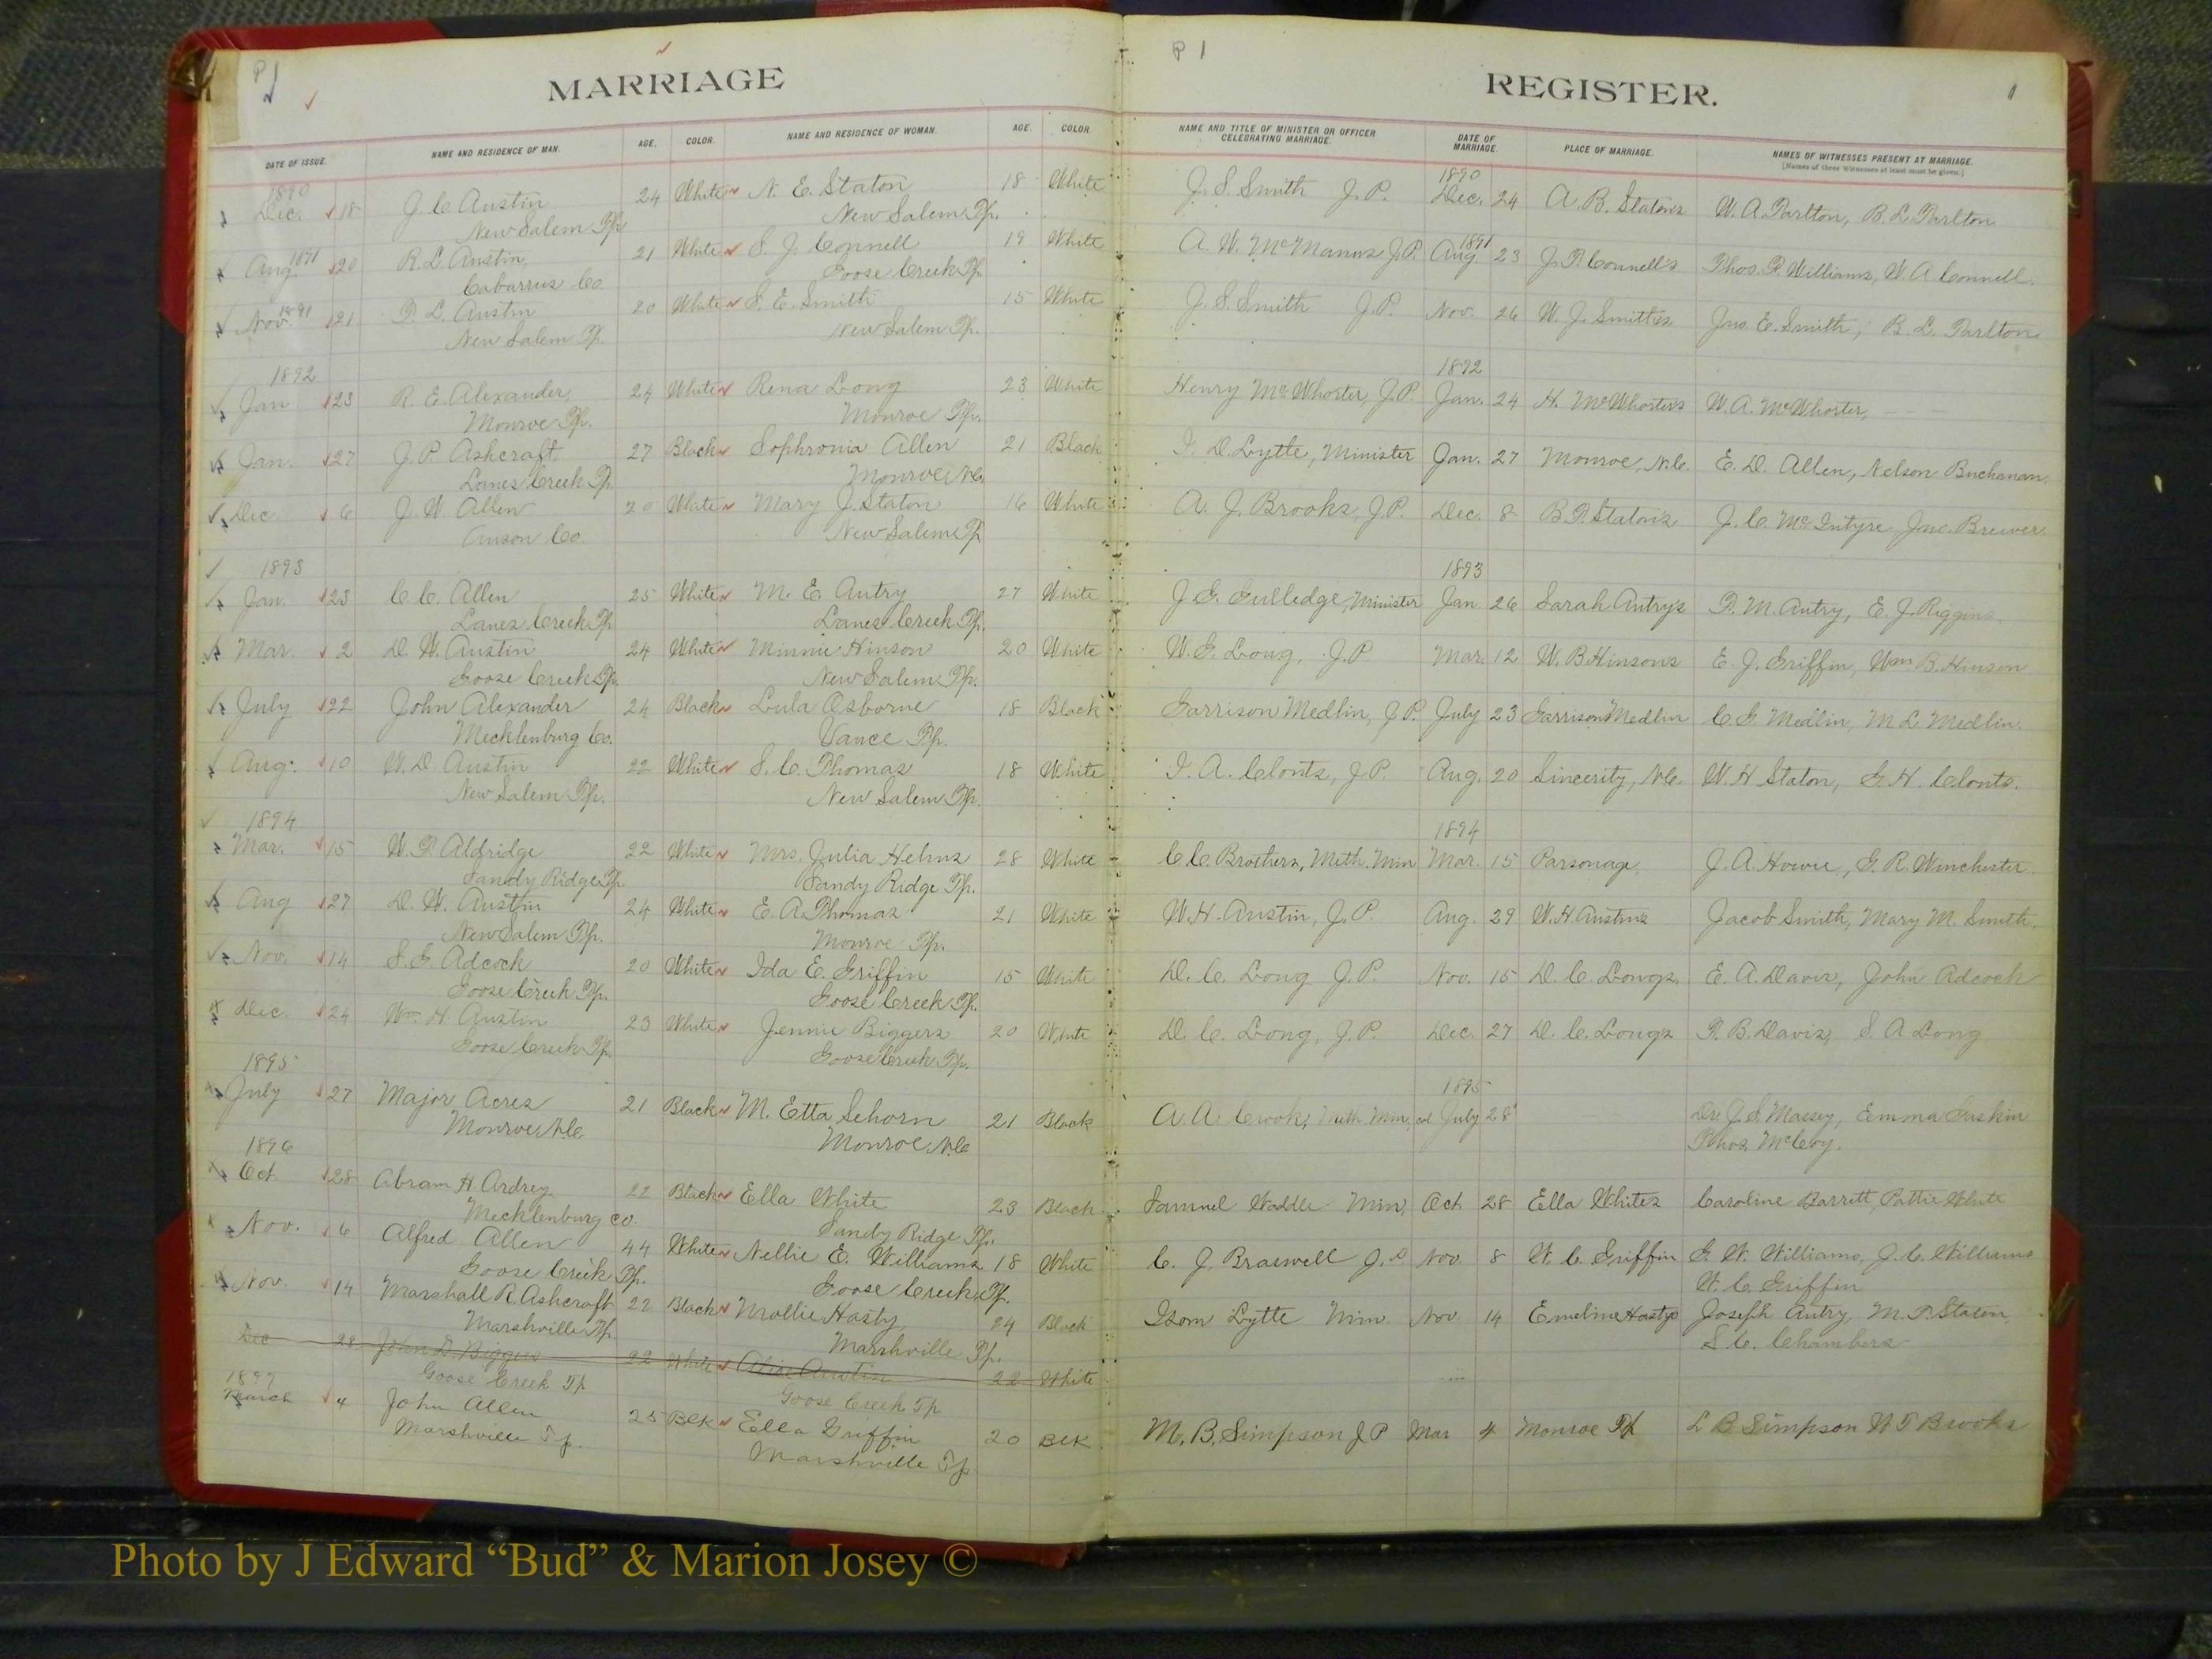 P 1
MARRIAGE
DATE OF ISSUE. NAME AND RESIDENCE OF MAN. AGE. COLOR. NAME AND RESIDENCE OF WOMAN. AGE. COLOR.
P 1
REGISTER.
1
NAME AND TITLE OF MINISTER OR OFFICER CELEBRATING MARRIAGE. DATE OF MARRIAGE. PLACE OF MARRIAGE. NAMES OF WITNESSES PRESENT AT MARRIAGE.
[Names of three Witnesses at least must be given.]
1890 1890
Dec. 18 J. C. Austin 24 White N. E. Staton 18 White J. S. Smith J. P. Dec. 24 A. B. Staton's W. A. Tarlton, B. L. Tarlton
New Salem Tp. New Salem Tp.
1891 1891
Aug. 20 R. L. Austin, 21 White S. J. Connell 19 White A. W. McManus J. P. Aug. 23 J. P. Connell's Thos. P. Williams, W. A. Connell.
Cabarrus Co. Goose Creek Tp.
1891
Nov. 21 P. L. Austin 20 White S. E. Smith 15 White J. S. Smith J. P. Nov. 26 W. J. Smith's Jno. E. Smith, B. L. Tarlton
New Salem Tp. New Salem Tp.
1892 1892
Jan 23 R. E. Alexander, 24 White Rena Long 23 White Henry McWhorter, J. P. Jan. 24 H. McWhorter's W. A. McWhorter,
Monroe Tp. Monroe Tp.
Jan. 27 J. P. Ashcraft 27 Black Sophronia Allen 21 Black I. D. Lytle, Minister Jan. 27 Monroe, N.C. E. D. Allen, Nelson Buchanan.
Lanes Creek Tp. Monroe N.C.
Dec. 6 J. W. Allen 20 White Mary J. Staton 16 White A. J. Brooks, J. P. Dec. 8 B. P. Staton's J. C. McIntyre, Jno. Brewer.
Anson Co. New Salem Tp
1893 1893
Jan. 23 C. C. Allen 25 White M. E. Autry 27 White J. G. Gulledge, Minister Jan. 26 Sarah Autry's P. M. Autry, E. J. Riggins.
Lanes Creek Tp Lanes Creek Tp.
Mar. 2 D. W. Austin 24 White Minnie Hinson 20 White W. G. Long, J. P. Mar. 12 W. B. Hinson's E. J. Griffin, Wm B. Hinson
Goose Creek Tp. New Salem Tp.
July 22 John Alexander 24 Black Lula Osborne 18 Black Garrison Medlin, J. P. July 23 Garrison Medlin C. G. Medlin, M. L. Medlin.
Mecklenburg Co. Vance Tp.
Aug. 10 W. D. Austin 22 White S. C. Thomas 18 White I. A. Clontz, J. P. Aug. 20 Sincerity, N.C. W. H Staton, G. H. Clontz.
New Salem Tp. New Salem Tp.
1894 1894
Mar. 15 W. P. Aldridge 22 White Mrs. Julia Helms 28 White C. C. Brothers, Meth. Min Mar. 15 Parsonage, J. A. Howie, G. R. Winchester.
Sandy Ridge Tp. Sandy Ridge Tp.
Aug 27 D. W. Austin 24 White E. A. Thomas 21 White W. H. Austin, J. P. Aug. 29 W. H. Austins Jacob Smith, Mary M. Smith.
New Salem Tp. Monroe Tp.
Nov. 14 S. G. Adcock 20 White Ida E. Griffin 15 White D. C. Long J. P. Nov. 15 D. C. Longs. E. A. Davis, John Adcock
Goose Creek Tp. Goose Creek Tp.
Dec. 24 Wm. H. Austin 23 White Jennie Biggers 20 White D. C. Long, J. P. Dec. 27 D. C. Longs P. B. Davis, S A Long
Goose Creek Tp. Goose Creek Tp.
1895 1895
July 27 Major Acres 21 Black M. Etta Sehorn 21 Black A. A. Crook, Meth Min, col July 28 Dr. J. S. Massey, Emma Guskin
Monroe N.C. Monroe N.C. Thos. McCoy.
1896
Oct. 28 Abram H. Ardrey 22 Black Ella White 23 Black Samuel Waddle Min, Oct 28 Ella Whites Caroline Barrett, Pattie White
Mecklenburg co. Sandy Ridge Tp.
Nov. 6 Alfred Allen 44 White Nellie E. Williams 18 White C. J. Braswell J. P Nov 8 W. C. Griffin G. W. Williams, J. C. Williams
Goose Creek Tp. Goose Creek Tp. W. C. Griffin
Nov. 14 Marshall R. Ashcraft 22 Black Mollie Hasty 24 Black Isom Lytle Min. Nov 14 Emeline Hastys Joseph Autry, M. P. Staton,
Marshville Tp. Marshville Tp. S. C. Chambers
Dec 28 John D. Biggers 22 White Alice Austin 22 White
Goose Creek Tp Goose Creek Tp
1897
March 4 John Allen 25 Blk Ella Griffin 20 Blk M. B. Simpson J P Mar 4 Monroe Tp L B Simpson W T Brooks
Marshville Tp. Marshville Tp
Photo by J Edward “Bud” & Marion Josey ©